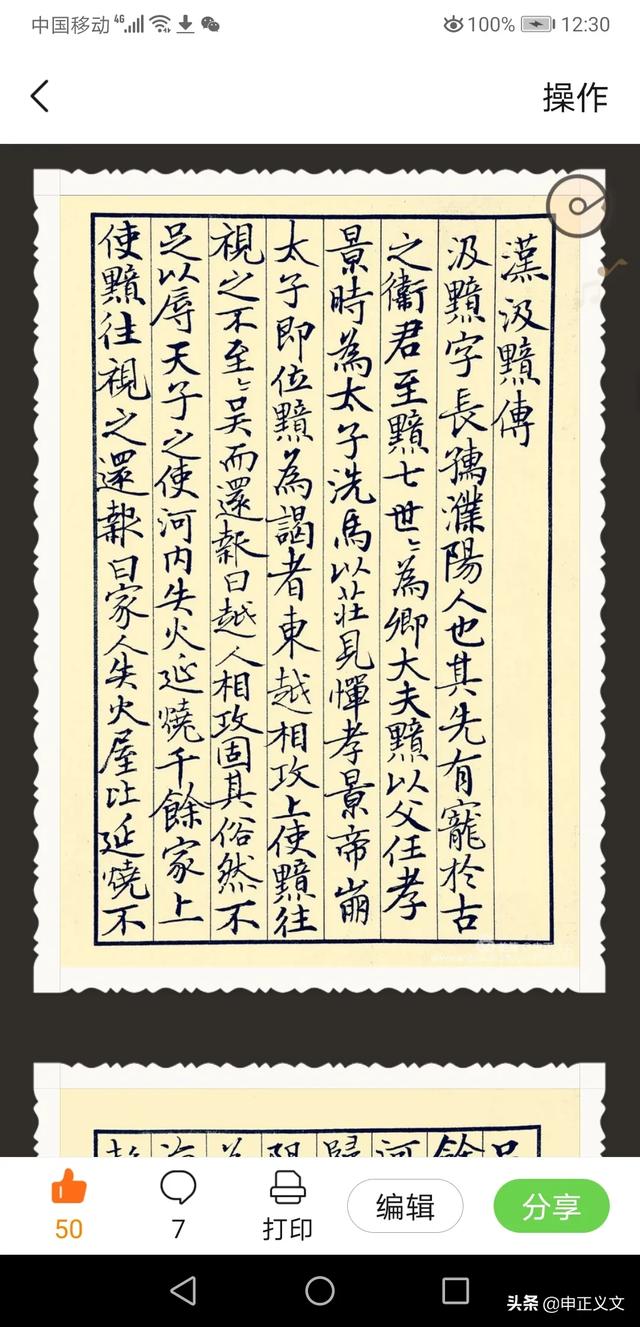 中国移动 4G 100% 12:30
操作
漢汲黯傳
汲黯字長孺濮陽人也其先有寵於古
之衛君至黯七世〻為卿大夫黯以父任孝
景時為太子洗馬以莊見憚孝景帝崩
太子即位黯為謁者東越相攻上使黯往
視之不至〻吳而還報曰越人相攻固其俗然不
足以辱天子之使河內失火延燒千餘家上
使黯往視之還報曰家人失火屋比延燒不
50
7
打印
编辑
分享
头条 @申正义文